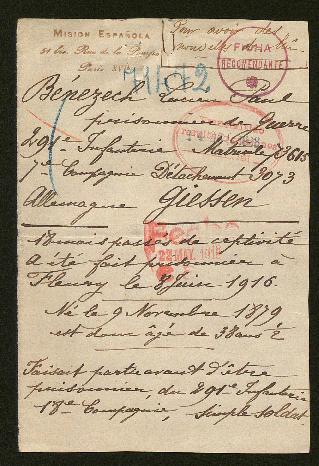 MISION ESPAÑOLA
Pour avoir des
51 bis, Rue de la Pompe
nouvelles
Paris XVIe
FICHA
RECHERDANTE
Bénezech Lucien Paul
prisonnier de Guerre
291e Infanterie Matricule
7me Compagnie Détachement 3973
Allemagne Giessen
18 mois passés de captivité
22 MAY. 1918
A été fait prisonnier à
Fleury le 8 Juin 1916
Né le 9 Novembre 1879
est donc âgé de 38 ans ½
Faisait partie avant d'être
prisonnier, du 291e Infanterie
18e Compagnie, simple soldat.